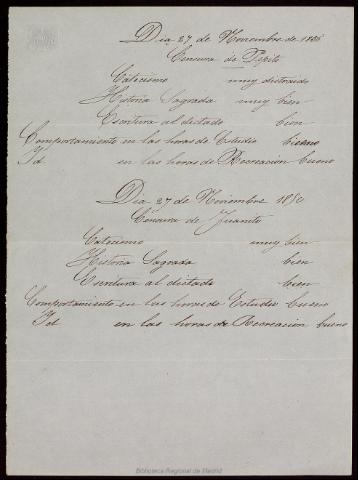 Dia 27 de Noviembre de 188
Censura de Pepito
Catecismo muy distraido
Historia Sagrada muy bien
Escritura al dictado bien
Comportamiento en las horas de Estudio bueno
Id en las horas de Recreacion bueno
Dia 27 de Noviembre 188
Censura de Juanito
Catecismo muy bien
Historia Sagrada bien
Escritura al dictado bien
Comportamiento en las horas de Estudio bueno
Id en las horas de Recreacion bueno
Biblioteca Regional de Madrid